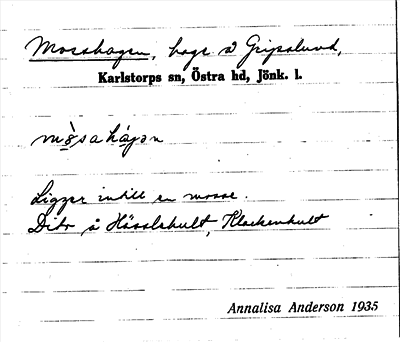 Mosshagen, hage å Gripslund,
Karlstorps sn, Östra hd, Jönk. l.
mò̀sahágən
Ligger intill en mosse.
Dito å Hässlehult, Klackenhult
Annalisa Anderson 1935